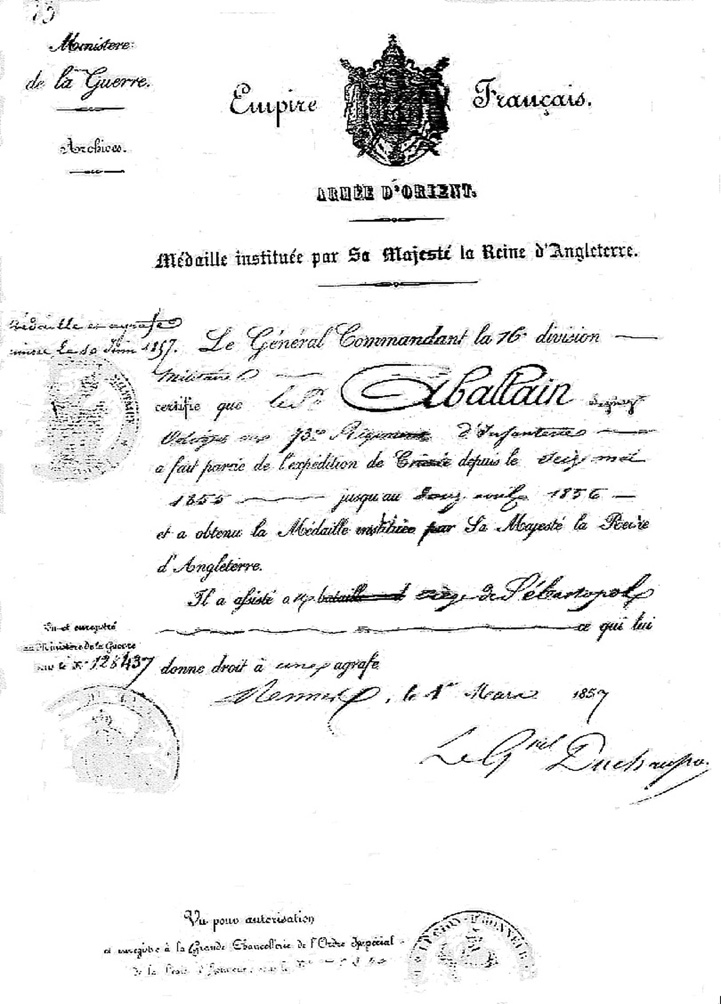 73
Ministere
de la Guerre.
Archives.
Empire Français.
ARMÉE D'ORIENT.
Médaille instituée par Sa Majesté la Reine d'Angleterre.
Médaille et agrafe
le 10 Juin 1857.
Le Général Commandant la 16e division
Militaire
certifie que le Sr Aballain
au 73e Régiment d'Infanterie
a fait partie de l'expédition de Crimée depuis le seize mai
1855 jusqu'au 1856
et a obtenu la Médaille instituée par Sa Majesté la Reine
d'Angleterre.
Il a assisté au bataille siège de Sébastopol
ce qui lui
Vu et enregistré
au Ministère de la Guerre
sur le No 128437
donne droit à une agrafe
Rennes, le 1er Mars 1857
Le Gal
Vu pour autorisation
et enregistré à la Grande Chancellerie de l'Ordre Impérial
de la Légion d'honneur